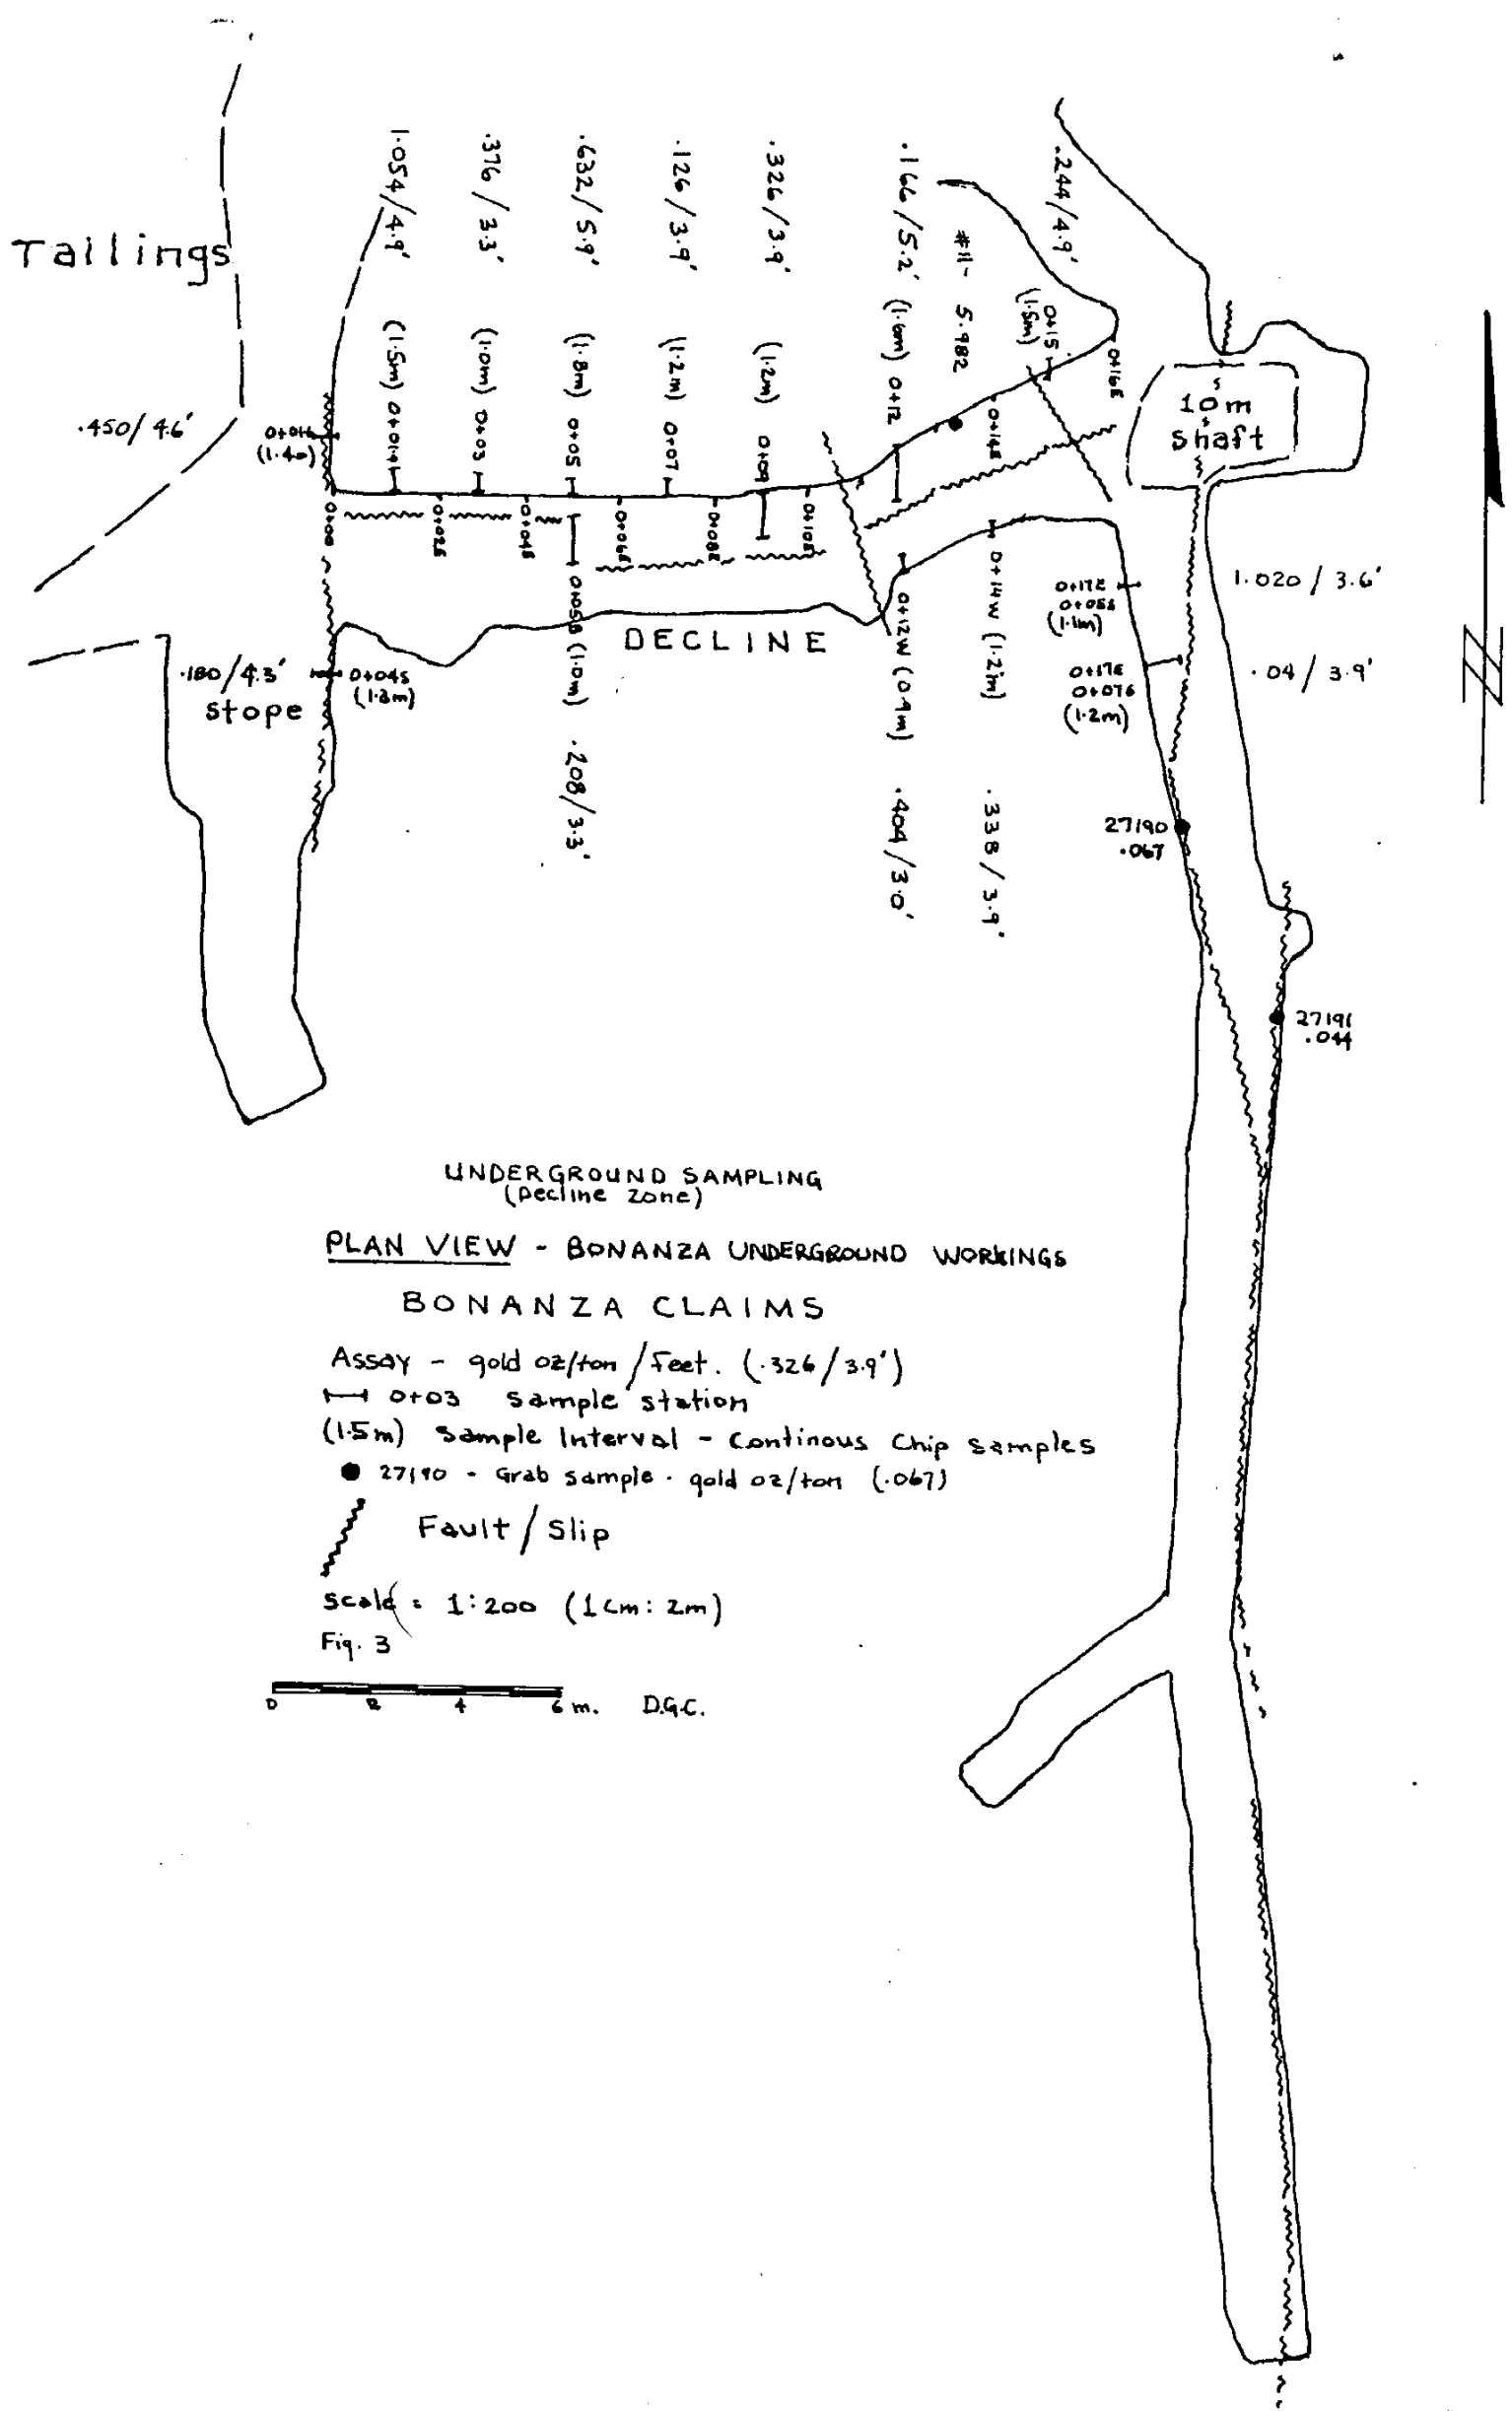 Tailings
1.054/4.9' (1.5m) 0+014
.376/3.3' (1.0m) 0+03
.632/5.9' (1.8m) 0+05
.126/3.9' (1.2m) 0+07
.326/3.9' (1.2m) 0+09
.166/5.2' (1.6m) 0+12
#11- 5.982
.244/4.9'
0+15
(1.5m)
0+14E
0+16E
10m
shaft
.450/4.6'
(1.4m)
0+00
0+02E
0+04E
0+06E
0+08E
0+10E
0+05B (1.0m) .208/3.3'
DECLINE
0+12W (0.9m) .404/3.0'
0+14W (1.2m) .338/3.9'
0+17E
0+05S
(1.1m)
1.020/3.6'
0+17E
0+07S
(1.2m)
.04/3.9'
.180/4.3'
0+04S
(1.3m)
stope
27190
.067
27191
.044
UNDERGROUND SAMPLING
(Decline Zone)
PLAN VIEW - BONANZA UNDERGROUND WORKINGS
BONANZA CLAIMS
Assay - gold oz/ton / feet. (.326/3.9')
0+03 sample station
(1.5m) Sample Interval - Continous Chip samples
27190 - Grab sample - gold oz/ton (.067)
Fault / Slip
scale = 1:200 (1cm: 2m)
Fig. 3
0 2 4 6 m. D.G.C.